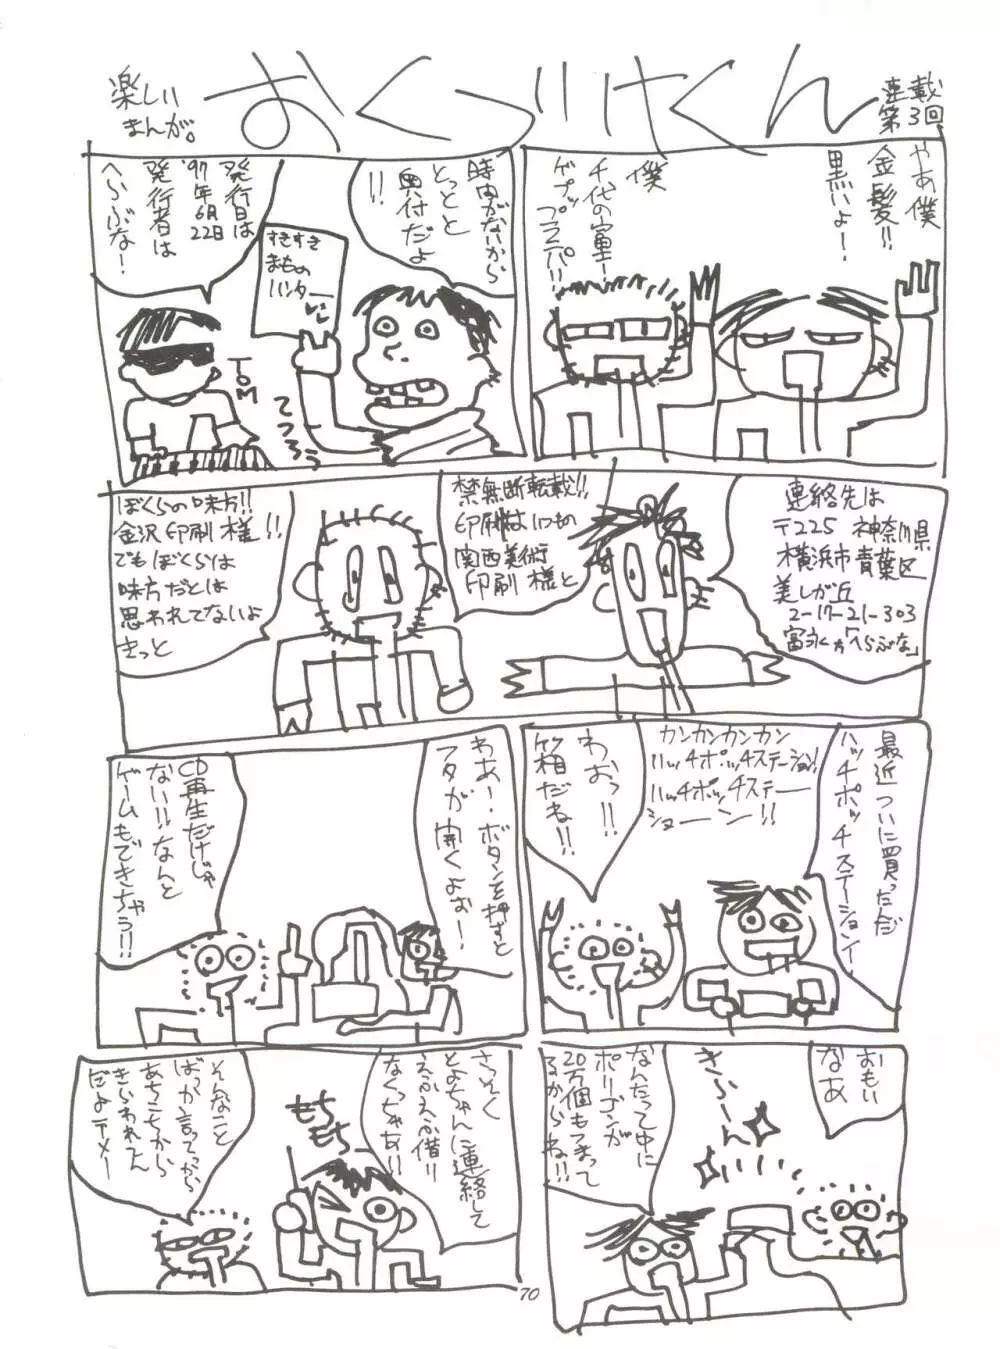 楽しい
まんが。
おくづけくん
連載
第3回
やあ僕
金髪!!
黒いよ!
僕
千代の富士!
ゲプッ
プラパパ!!
時間がないから
とっとと
奥付だよ
!!
すきすき
まもの
ハンター
発行日は
'97年6月22日
発行者は
へらぶな!
TOM
てつろう
連絡先は
〒225 神奈川県
横浜市青葉区
美しが丘
2-17-21-303
富永方「へらぶな」
禁無断転載!!
印刷はいつもの
関西美術
印刷様と
ぼくらの味方!!
金沢印刷様!!
でもぼくらは
味方だとは
思われてないよ
きっと
最近ついに買っただ
ハッチポッチステーションイ
カンカンカンカン
ハッチポッチステーション!
ハッチポッチステー
ショーン!!
わおっ!!
箱だね!!
わあー、ボタンを押すと
フタが開くよぉー!
CD再生だけじゃ
ない!!なんと
ゲームもできちゃう!!
おもい
なあ
きらーん
なんたって中に
ポリゴンが
20万個もつまって
るからね!!
さっそく
とよちゃんに連絡して
えふえふ借り
なくっちゃあ!!
もち
もち
そんなこと
ばっか言ってっから
あちこちから
きらわれてん
だよテメー
70